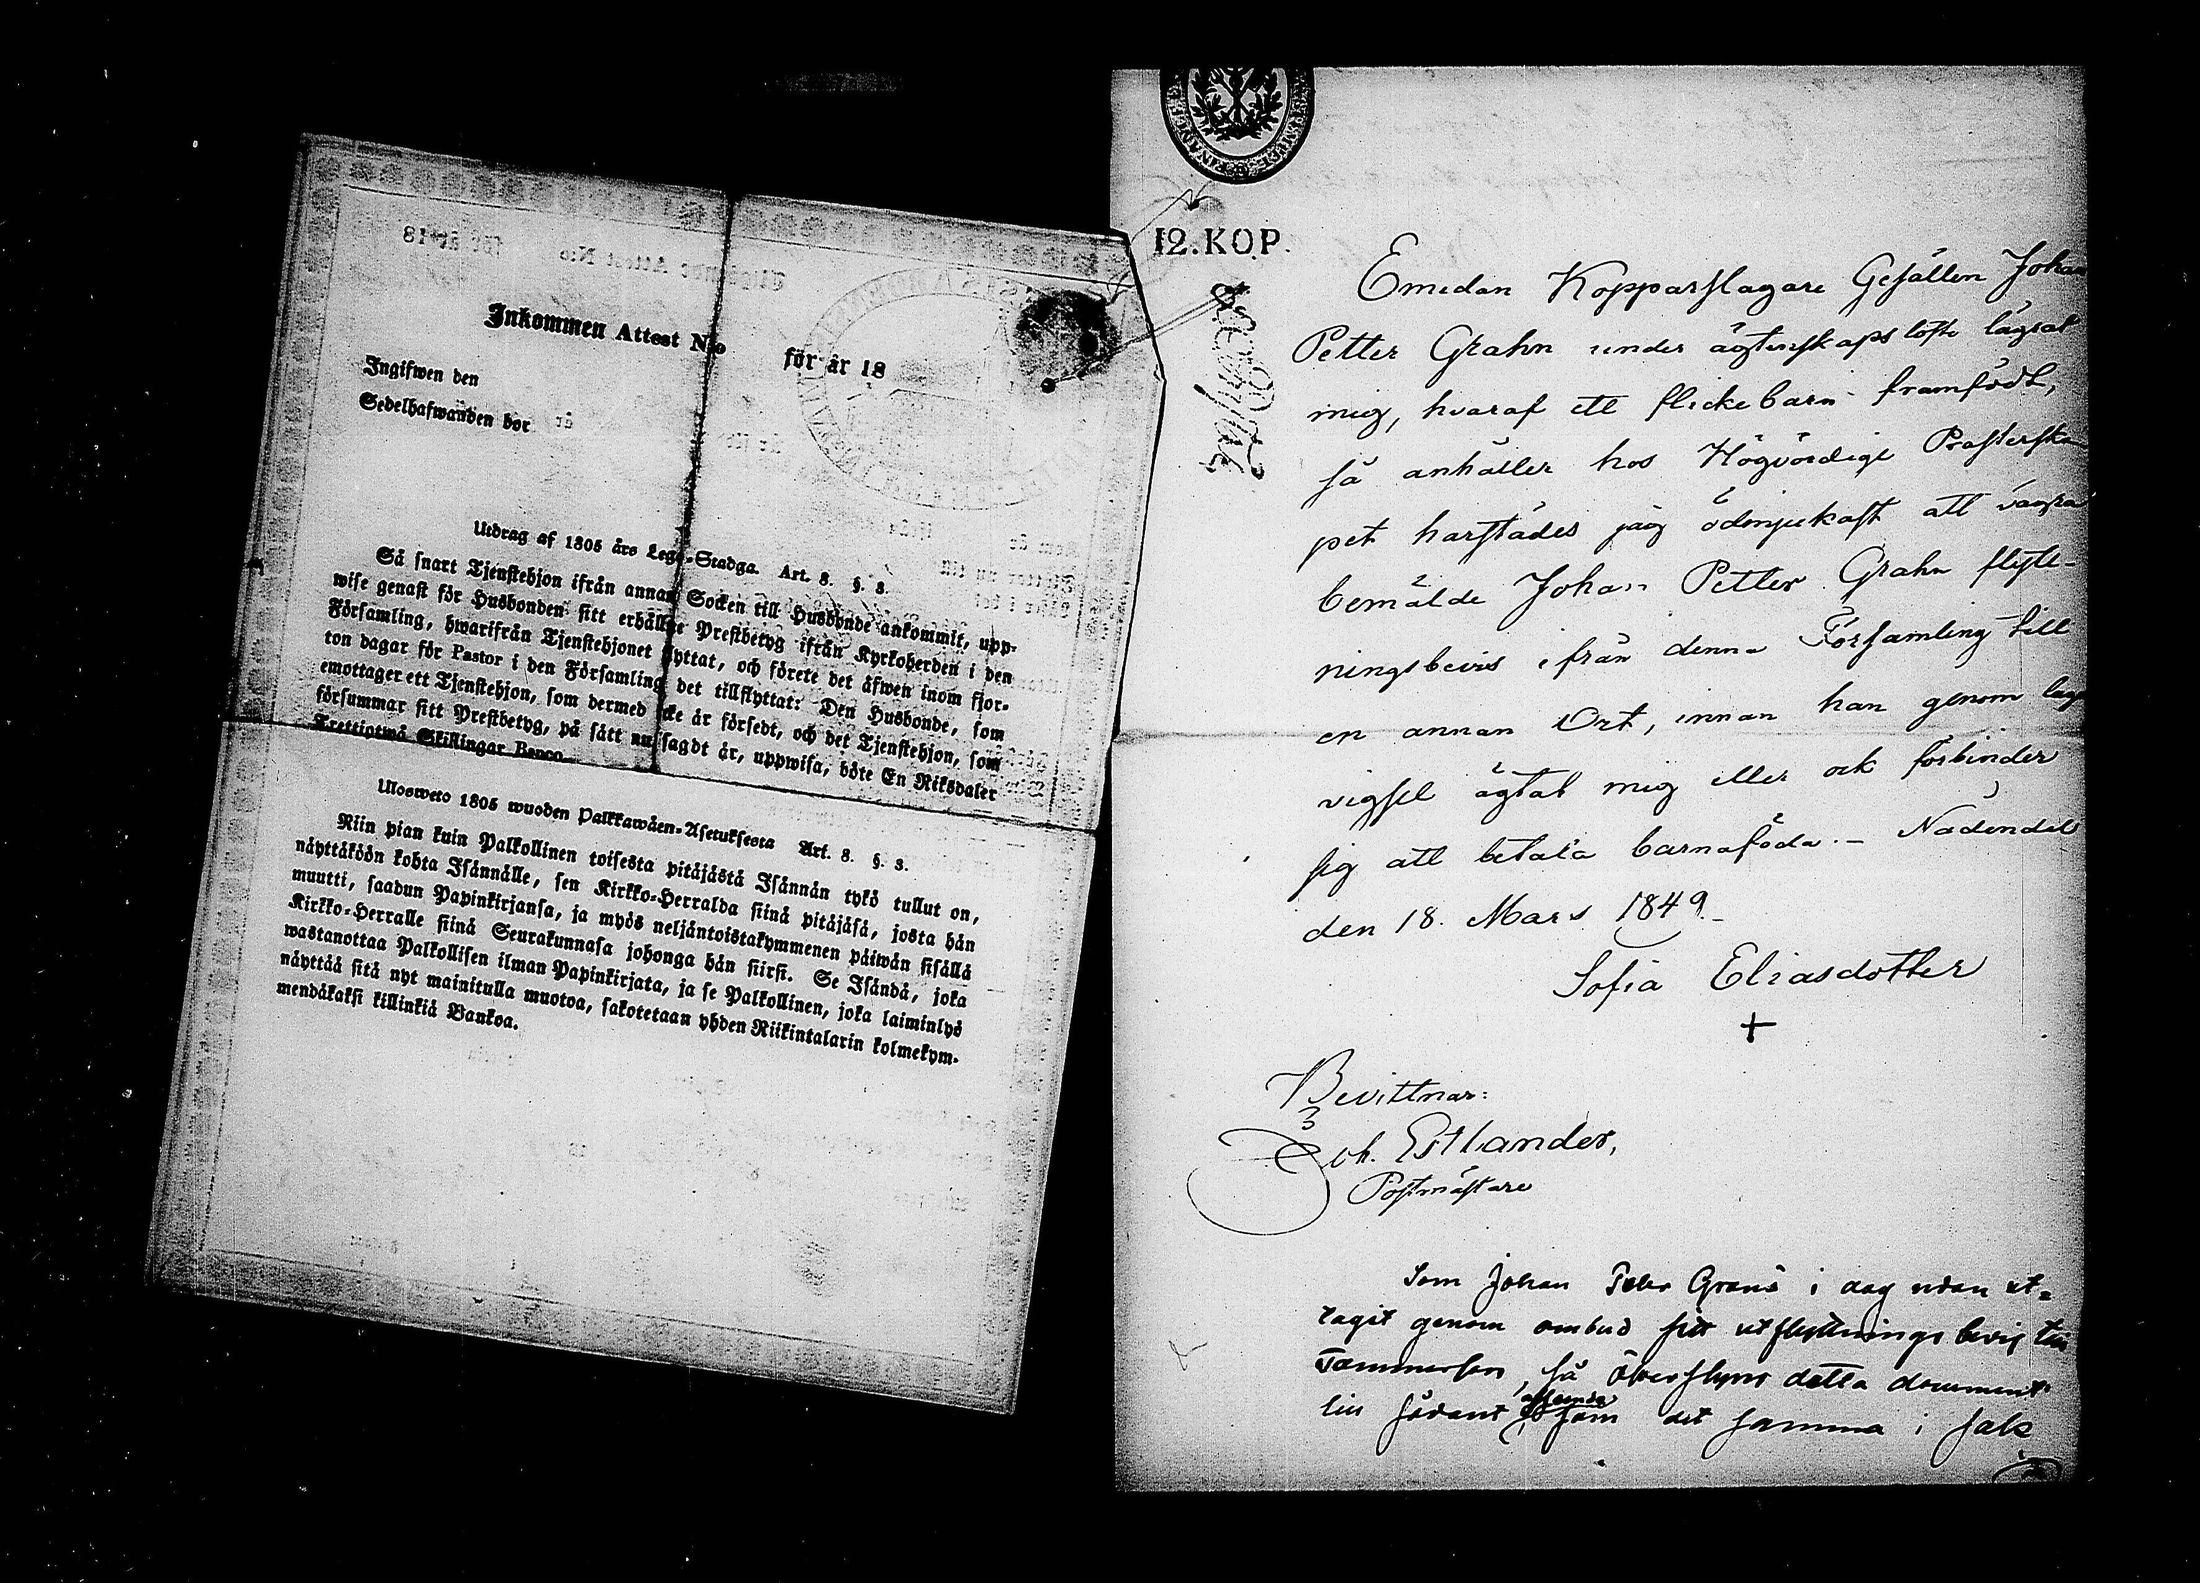 Inkommen Attest N:o för år 18
Ingifwen den
Sedelhafwanden bor
Utdrag af 1805 års Lego-Stadga. Art. 8. §. 3.
Så snart Tjenstehjon ifrån annan Socken till Husbonde ankommit, upp-
wise genast för Husbonden sitt erhållne Prestbetyg ifrån Kyrkoherden i den
Församling, hwarifrån Tjenstehjonet flyttat, och förete det äfwen inom fjor-
ton dagar för Pastor i den Församling det tillflyttat: Den Husbonde, som
emottager ett Tjenstehjon, som dermed icke är försedt, och det Tjenstehjon, som
försummar sitt Prestbetyg, på sätt nu sagdt är, uppwisa, böte En Riksdaler
Trettiotwå Skillingar Banco.
Ulosweto 1805 wuoden Palkkawäen-Asetuksesta Art. 8. §. 3.
Niin pian kuin Palkollinen toisesta pitäjästä Isännän tykö tullut on,
näyttäköön kohta Isännälle, sen Kirkko-Herralda siinä pitäjäsä, josta hän
muutti, saadun Papinkirjansa, ja myös neljäntoistakymmenen päiwän sisällä
Kirkko-Herralle siinä Seurakunnasa johonga hän siirsi. Se Isändä, joka
wastanottaa Palkollisen ilman Papinkirjata, ja se Palkollinen, joka laiminlyö
näyttää sitä nyt mainitulla muotoa, sakotetaan yhden Riikintalarin kolmekym-
mendäkaksi killinkiä Bankoa.
12. KOP.
Emedan Kopparslagare Gesällen Johan
Petter Grahn under ägtenskaps löfte lägrat
mig, hvaraf ett flickebarn framfödt,
så anhåller hos Högvördige Prästerska
pet härstädes jag ödmjukast att vägra
bemälde Johan Petter Grahn flytt-
ningsbevis ifrån denna Församling till
en annan Ort, innan han genom laga
vigsel ägtat mig eller ock förbinder
sig att betala barnaföda. – Nådendal
den 18. Mars 1849
Sofia Eliasdotter
+
Bevittnar:
Joh. Estlander,
Postmästare
Som Johan Peter Grans i dag redan ut-
tagit genom ombud sitt utflyttnings bevis till
Tammerfors, så öfverflyns detta document
till sådant som det samma i sak